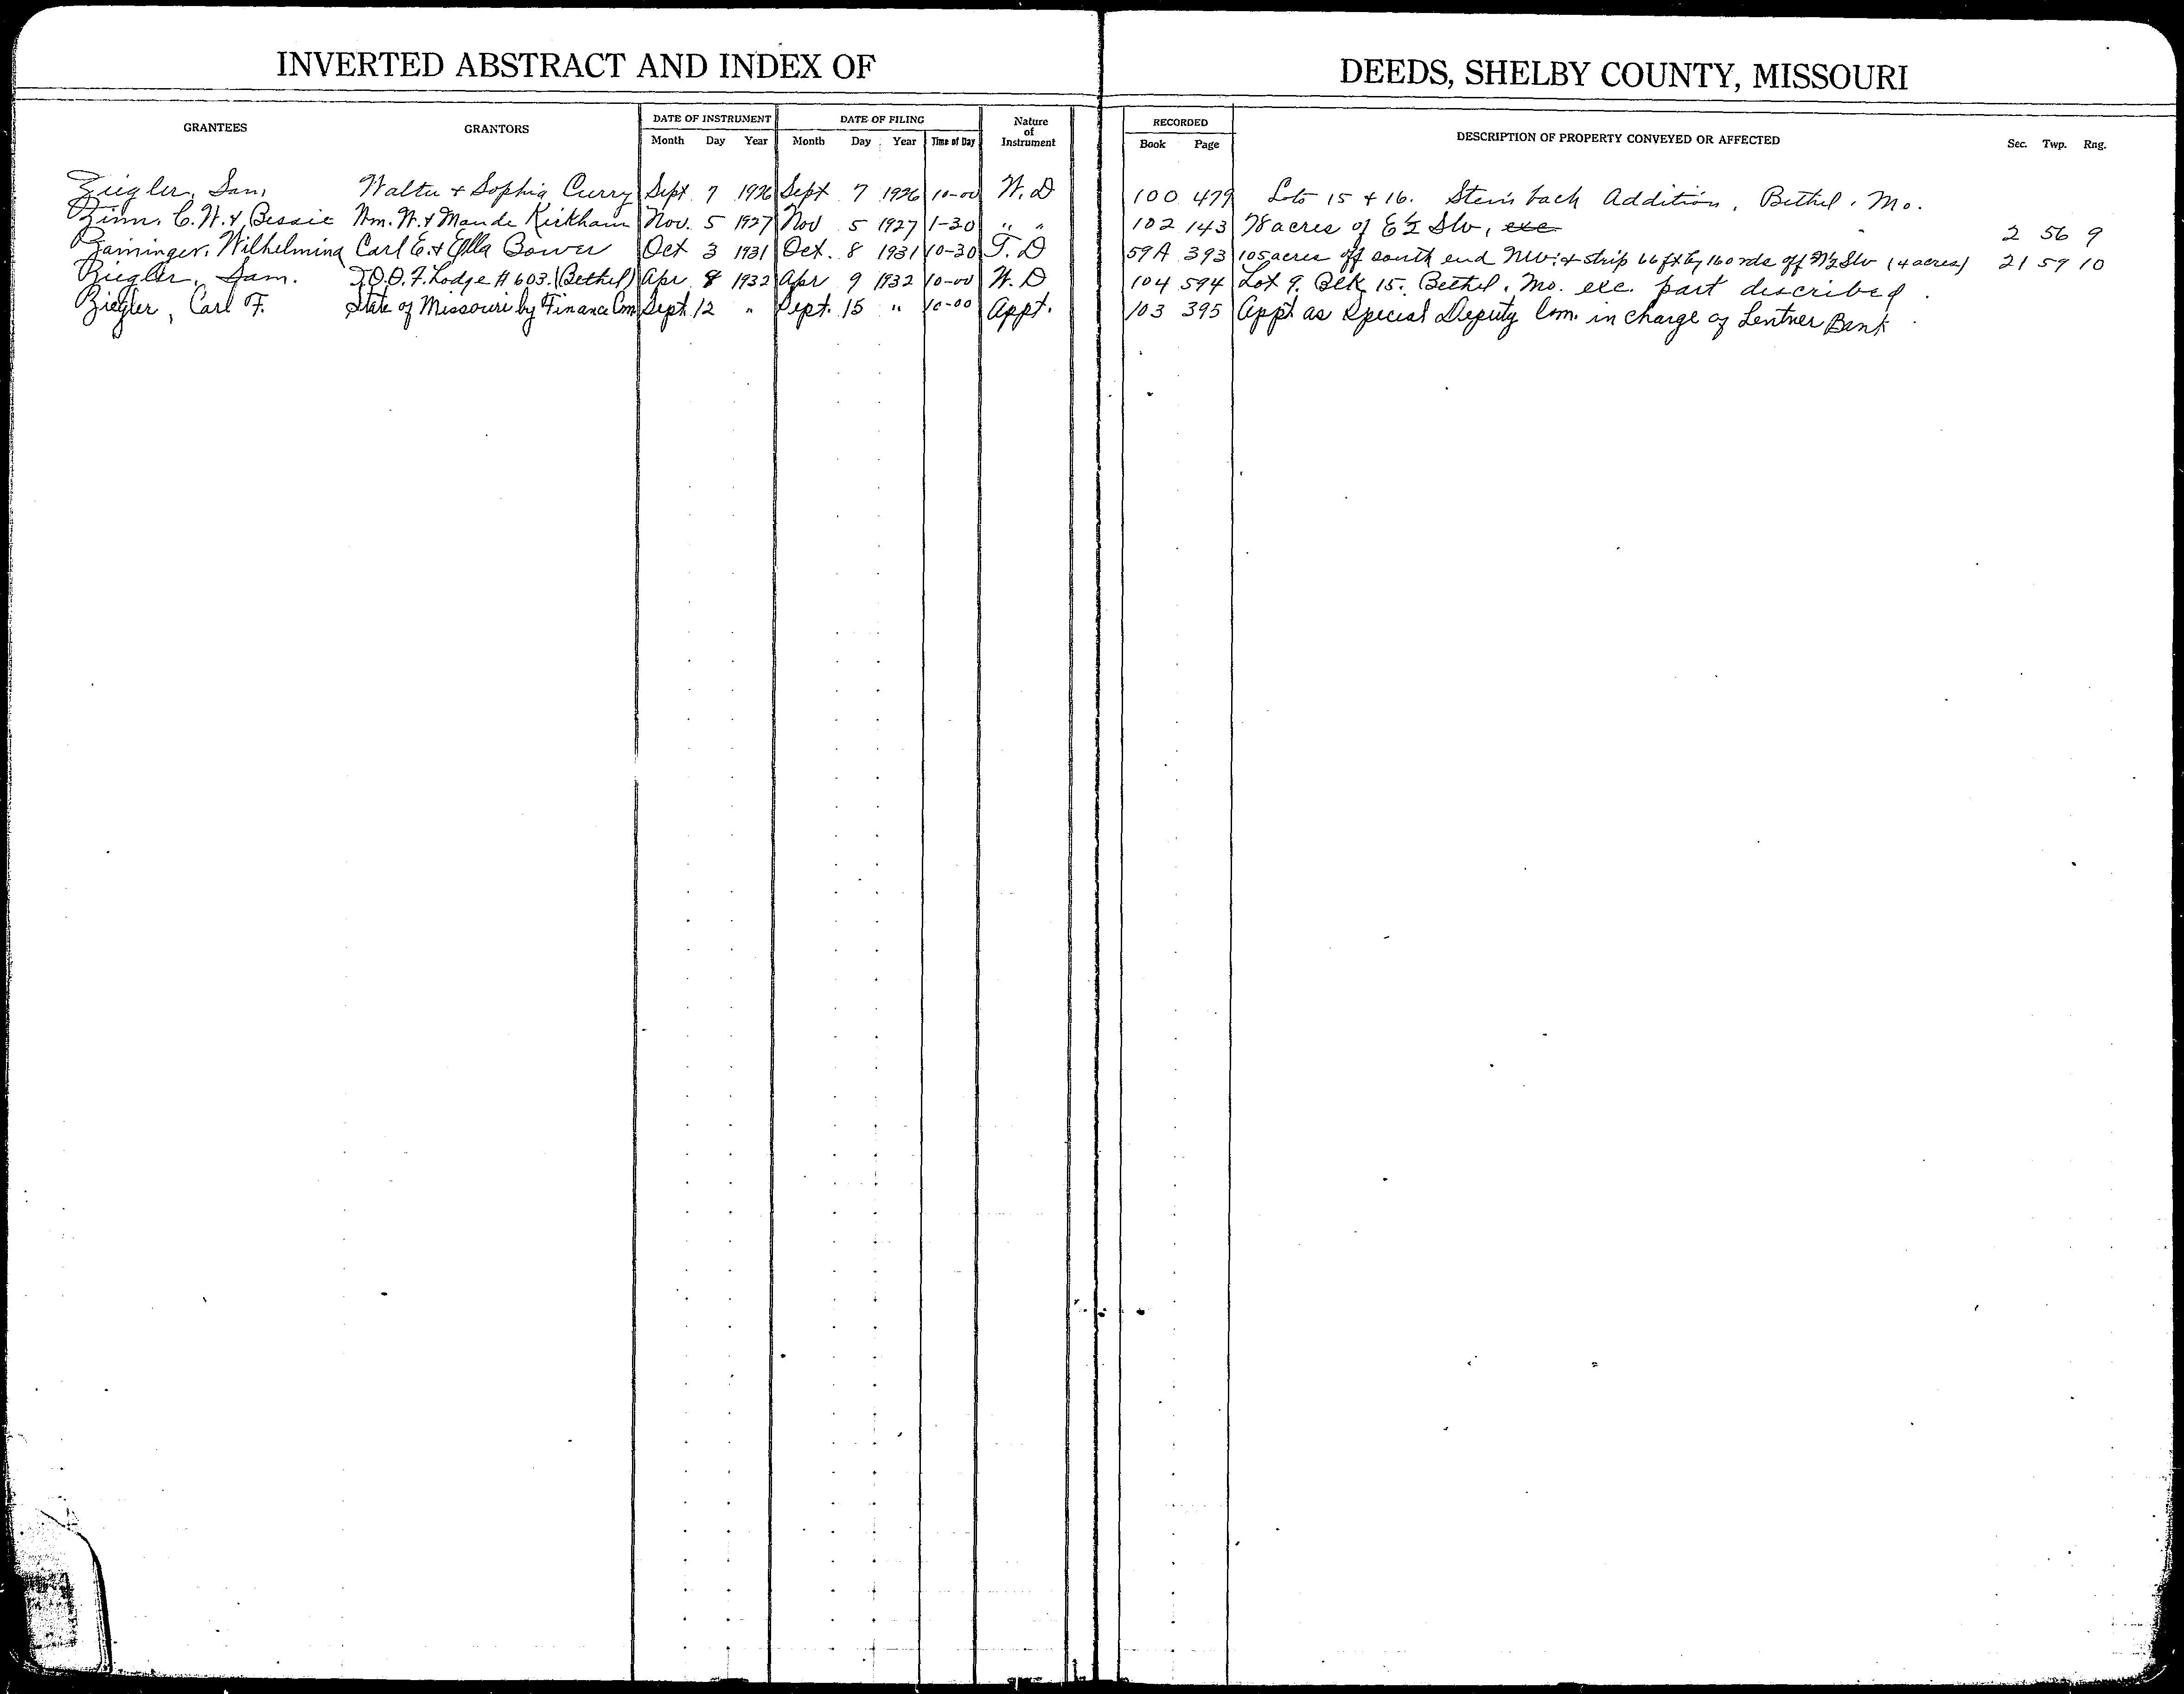 INVERTED ABSTRACT AND INDEX OF DEEDS, SHELBY COUNTY, MISSOURI
GRANTEES GRANTORS DATE OF INSTRUMENT DATE OF FILING Nature of Instrument RECORDED DESCRIPTION OF PROPERTY CONVEYED OR AFFECTED Sec. Twp. Rng.
Month Day Year Month Day Year Time of Day Book Page
Ziegler, Sam, Walter & Sophia Curry Sept. 7 1926 Sept 7 1926 10-00 W.D 100 479 Lots 15 & 16. Steinback Addition, Bethel, Mo.
Zinn, C.W. & Bessie Wm. W. & Maude Kirkham Nov. 5 1927 Nov 5 1927 1-30 " " 102 143 78 acres of E½ SW, exc 2 56 9
Wilhelmina Carl E. & Ella Bower Oct 3 1931 Oct. 8 1931 10-30 T.D 59A 393 105 acres off south end NW; & strip 66 ft by 160 rds off N½ SW (4 acres) 21 59 10
Ziegler, Sam. I.O.O.F. Lodge # 603. (Bethel) Apr 8 1932 Apr 9 1932 10-00 W.D 104 594 Lot 9. Blk 15. Bethel, Mo. exc. part described.
Ziegler, Carl F. State of Missouri by Finance Com Sept. 12 " Sept. 15 " 10-00 Appt. 103 395 Appt as Special Deputy Com. in charge of Lentner Bank